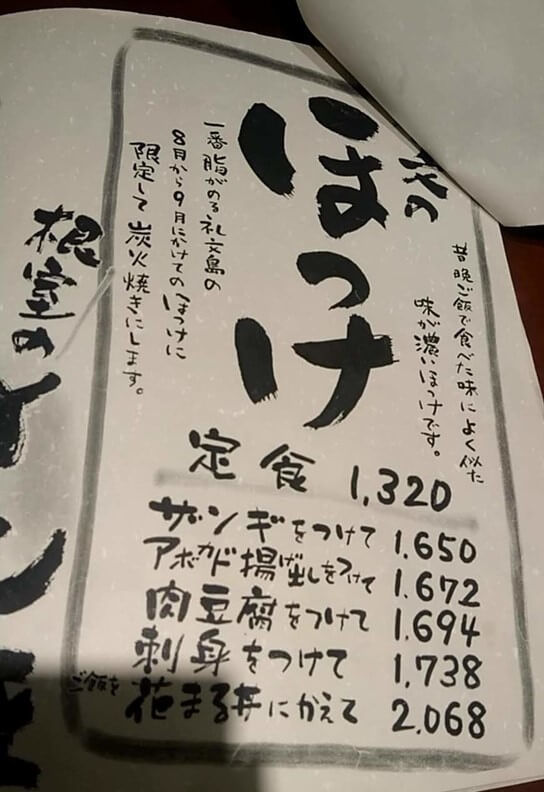 文の
ほっけ
昔晩ご飯で食べた味によく似た
味が濃いほっけです。
一番脂がのる礼文島の
8月から9月にかけてのほっけに
限定して炭火焼きにします。
定食 1,320
ザンギをつけて 1,650
アボカド揚げ出しをつけて 1,672
肉豆腐をつけて 1,694
刺身をつけて 1,738
ご飯を花まる丼にかえて 2,068
根室の